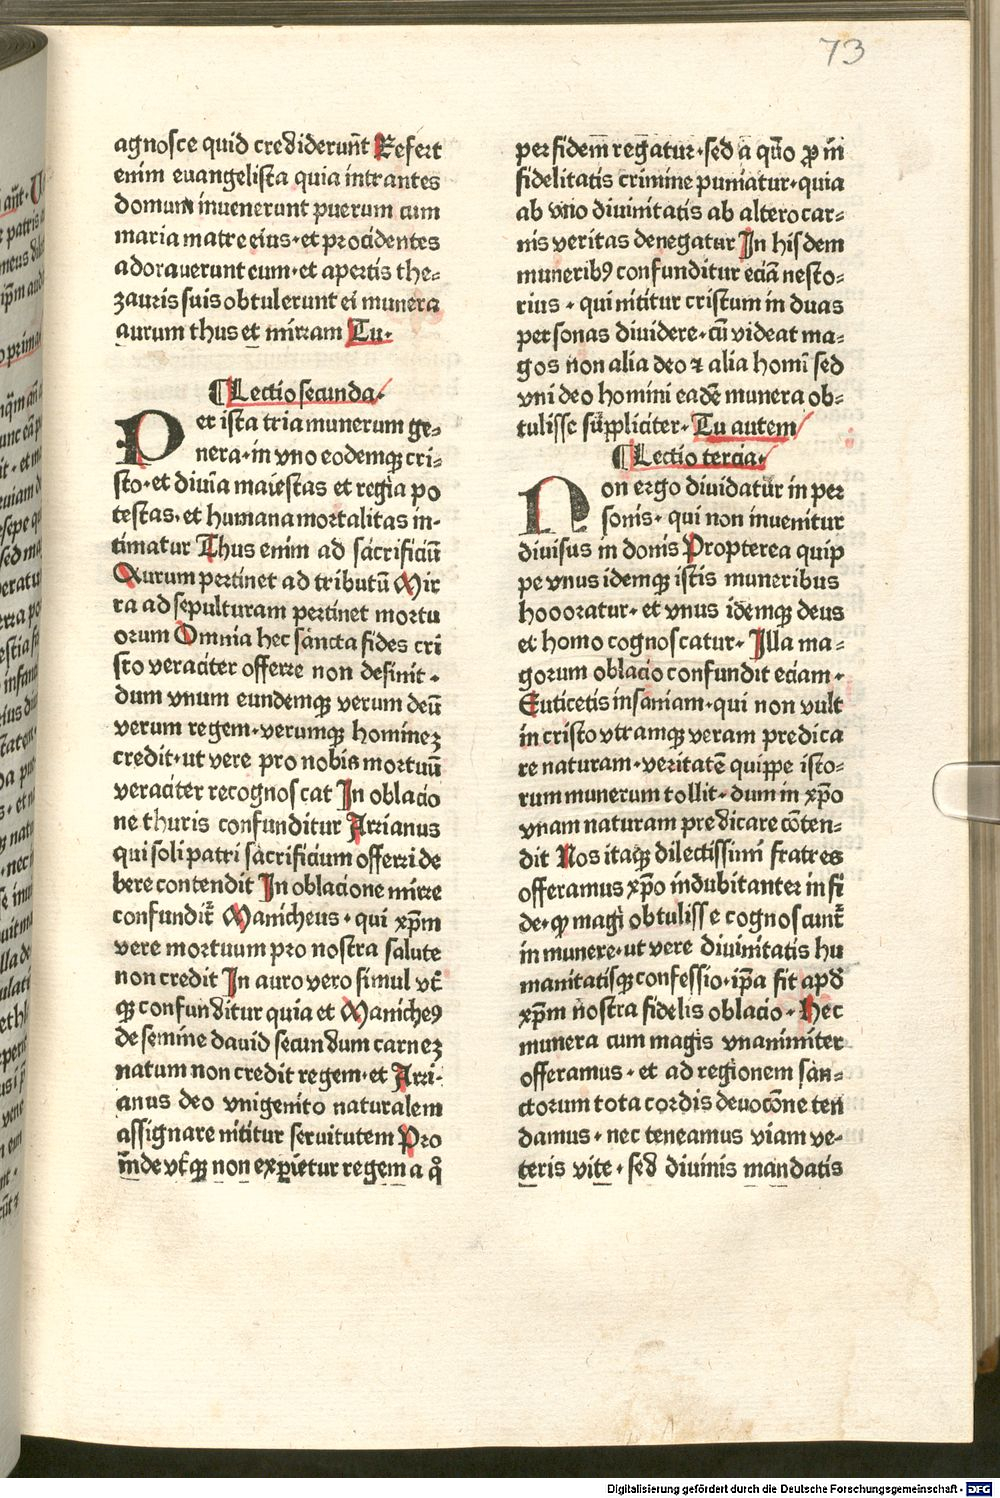 73
agnosce quid crediderūt Refert
enim euangelista quia intrantes
domum inuenerunt puerum cum
maria matre eius·et procidentes
adorauerunt eum·et apertis the-
zauris suis obtulerunt ei munera
aurum thus et mirram Tu·
¶Lectio secunda·
Per ista tria munerum ge-
nera·in vno eodemqȝ cri-
sto·et diuīa maiestas et regia po
testas·et humana mortalitas in-
timatur Thus enim ad sacrificiū
Aurum pertinet ad tributū Mir
ra ad sepulturam pertinet mortu
orum Omnia hec sancta fides cri
sto veraciter offerre non definit·
dum vnum eundemqȝ verum deū
verum regem·verumqȝ hominez
credit·ut vere pro nobis mortuū
veraciter recognoscat In oblacio
ne thuris confunditur Arrianus
qui soli patri sacrificium offerri de
bere contendit In oblacione mirre
confundit᷑ Manicheus·qui xp̄m
vere mortuum pro nostra salute
non credit In auro vero simul vt᷑
qȝ confunditur quia et Maniche⁹
de semine dauid secundum carnez
natum non credit regem·et Arri-
anus deo vnigenito naturalem
assignare nititur seruitutem Pro
inde vt᷑qȝ non exꝑietur regem a q̊
per fidem regatur·sed a quo ꝓ in
fidelitatis crimine puniatur·quia
ab vno diuinitatis ab altero car-
nis veritas denegatur In hisdem
muneribꝰ confunditur eciā nesto-
rius·qui nititur cristum in duas
personas diuidere·cū videat ma-
gos non alia deo ⁊ alia homī sed
vni deo homini eadē munera ob-
tulisse suppliciter·Tu autem
¶Lectio tercia·
Non ergo diuidatur in per
sonis·qui non inuenitur
diuisus in donis Propterea quip
pe vnus idemqȝ istis muneribus
hoooratur·et vnus idemqȝ deus
et homo cognoscatur·Illa ma-
gorum oblacio confundit eciam·
Euticetis insaniam·qui non vult
in cristo vtramqȝ veram predica
re naturam·veritatē quippe isto-
rum munerum tollit·dum in xp̄o
vnam naturam predicare cōten-
dit Nos itaqȝ dilectissimi fratres
offeramus xp̄o indubitanter in fi
de·ꝙ magi obtulisse cognoscunt᷑
in munere·ut vere diuinitatis hu
manitatisqȝ confessio·ip̄a fit apd̄
xp̄m nostra fidelis oblacio·Hec
munera cum magis vnanimiter
offeramus·et ad regionem san-
ctorum tota cordis deuocōne ten
damus·nec teneamus viam ve-
teris vite·sed diuinis mandatis
Digitalisierung gefördert durch die Deutsche Forschungsgemeinschaft - DFG